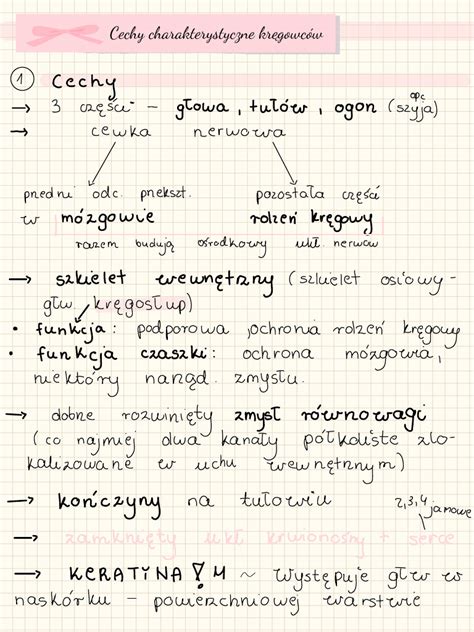 Cechy charakterystyczne kręgowców
① Cechy
opc
→ 3 części - głowa, tułów, ogon (szyja)
→ cewka nerwowa
przedni odc. przekszt. pozostała części
w mózgowie rdzeń kręgowy
razem budują ośrodkowy ukł. nerwów
→ szkielet wewnętrzny (szkielet osiowy-
głw kręgosłup)
• funkcja: podporowa, ochronia rdzeń kręgowy
• funkcja czaszki: ochrona mózgowia,
niektóry narząd. zmysłu.
→ dobrze rozwinięty zmysł równowagi
(co najmiej dwa kanały półkoliste zlo-
kalizowane w uchu wewnętrznym)
→ kończyny na tułowiu 2,3,4 jamowe
→ zamknięty ukł. krwionośny + serce
→ KERATYNA! M ~ występuje głw w
naskórku - powierzchniowej warstwie